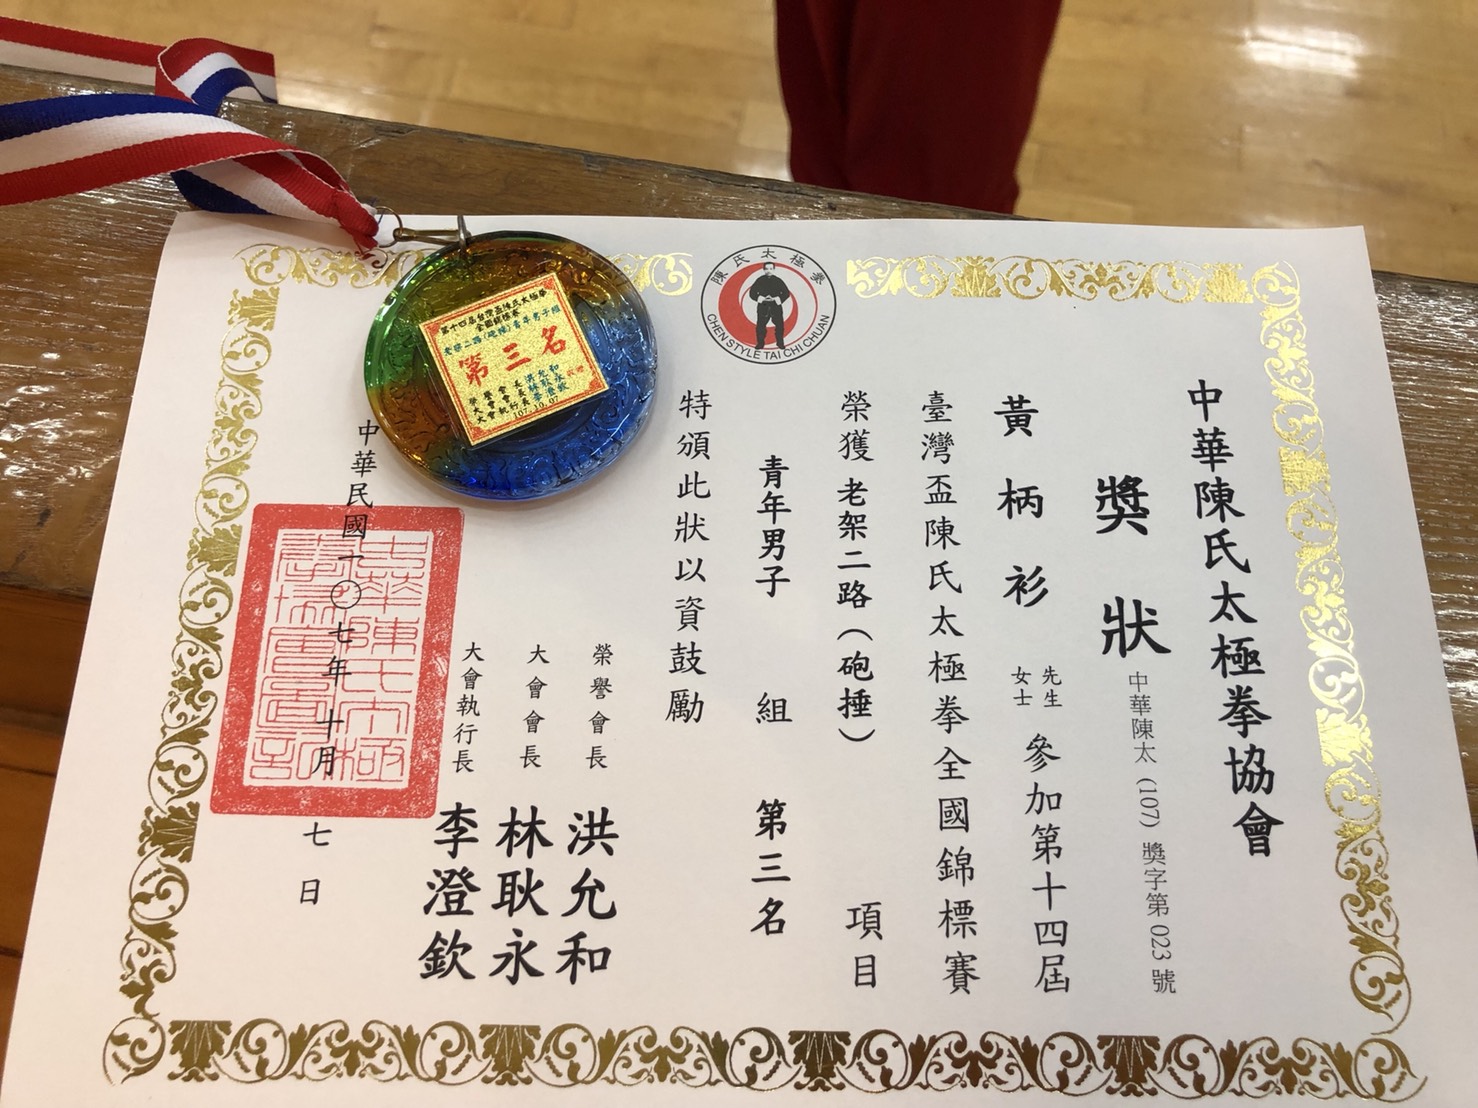 陳氏太極拳
CHEN STYLE TAI CHI CHUAN
中華陳氏太極拳協會
獎狀
中華陳太(107)獎字第023號
黃柄衫 先生 女士 參加第十四屆
臺灣盃陳氏太極拳全國錦標賽
榮獲 老架二路(砲捶) 項目
青年男子 組 第三名
特頒此狀以資鼓勵
榮譽會長 洪允和
大會會長 林耿永
大會執行長 李澄欽
中華民國一〇七年十月七日
中華陳氏太極
拳協會圖記
第十四屆台灣盃陳氏太極拳
全國錦標賽
老架二路(砲捶)青年男子組
第三名
107.10.07